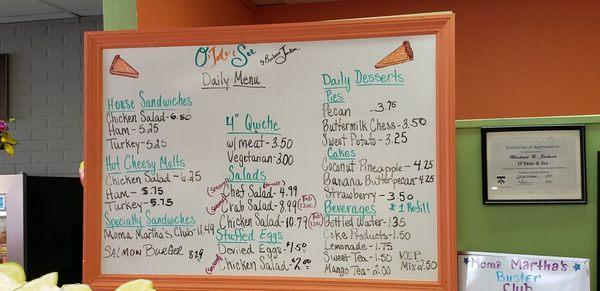 O'Taste & See
by Barbara Jackson
Daily Menu
House Sandwiches
Chicken Salad - 6.50
Ham - 5.25
Turkey - 5.25
Hot Cheesy Melts
Chicken Salad - 6.25
Ham - 5.75
Turkey - 5.75
Specialty Sandwiches
Moma Martha's Club - 11.49
Salmon Burger 8.29
4" Quiche
w/meat - 3.50
Vegetarian - 3.00
Salads
Chef Salad - 4.99
Crab Salad - 8.99
Chicken Salad - 10.79
Stuffed Eggs
Deviled Eggs - $1.50
Chicken Salad - $2.00
Daily Desserts
Pies
Pecan - 3.75
Buttermilk Chess - 3.50
Sweet Potato - 3.25
Cakes
Coconut Pineapple - 4.25
Banana Butterpecan - 4.25
Strawberry - 3.50
Beverages *1 Refill
Bottled Water - 1.35
Coke Products - 1.50
Lemonade - 1.75
Sweet Tea - 1.50
Mango Tea - 2.00
V.I.P.
Mix - 2.50
Certificate of Appreciation
Barbara E. Jackson
O'Taste & See
*Moma Martha's*
Buster
Club